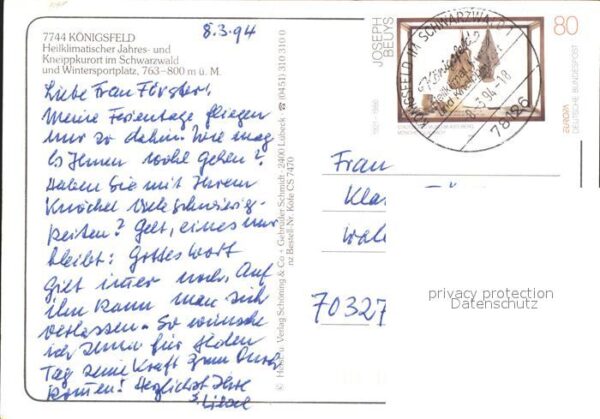 8.3.94
7744 KÖNIGSFELD
Heilklimatischer Jahres- und
Kneippkurort im Schwarzwald
und Wintersportplatz, 763–800 m ü. M.
Liebe Frau Förster!
Meine Ferientage fliegen
nur so dahin. Wie mag
es Ihnen wohl gehen?
Haben Sie mit Ihrem
Knöchel viele Schwierig-
keiten? Gelt, eines nur
bleibt: Gottes Wort
gilt immer noch. Auf
ihn kann man sich
verlassen. So wünsche
ich Ihnen für jeden
Tag seine Kraft zum Durch-
kommen! Herzlichst Ihre
Liesel
© Herst. u. Verlag Schöning & Co + Gebrüder Schmidt · 2400 Lübeck · ☎ (0451) 310 310 0
nz Bestell-Nr. Köle CS 7470
JOSEPH
BEUYS
1921 - 1986
80
EUROPA
DEUTSCHE BUNDESPOST
KÖNIGSFELD IM SCHWARZWALD 1
Königsfeld
Heilklimat
und Kneipp
8.-3.94-18
78126
Frau
Kla
Wal
70327
privacy protection
Datenschutz